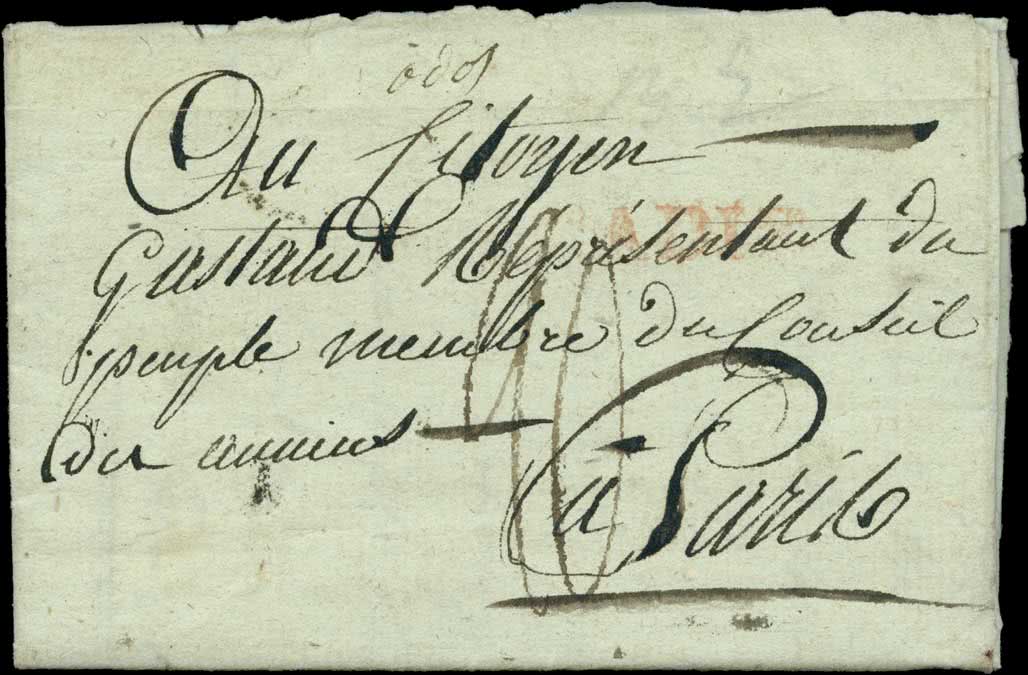 Au Citoyen
Gastaud Représentant du
peuple membre du Conseil
des anciens
à Paris